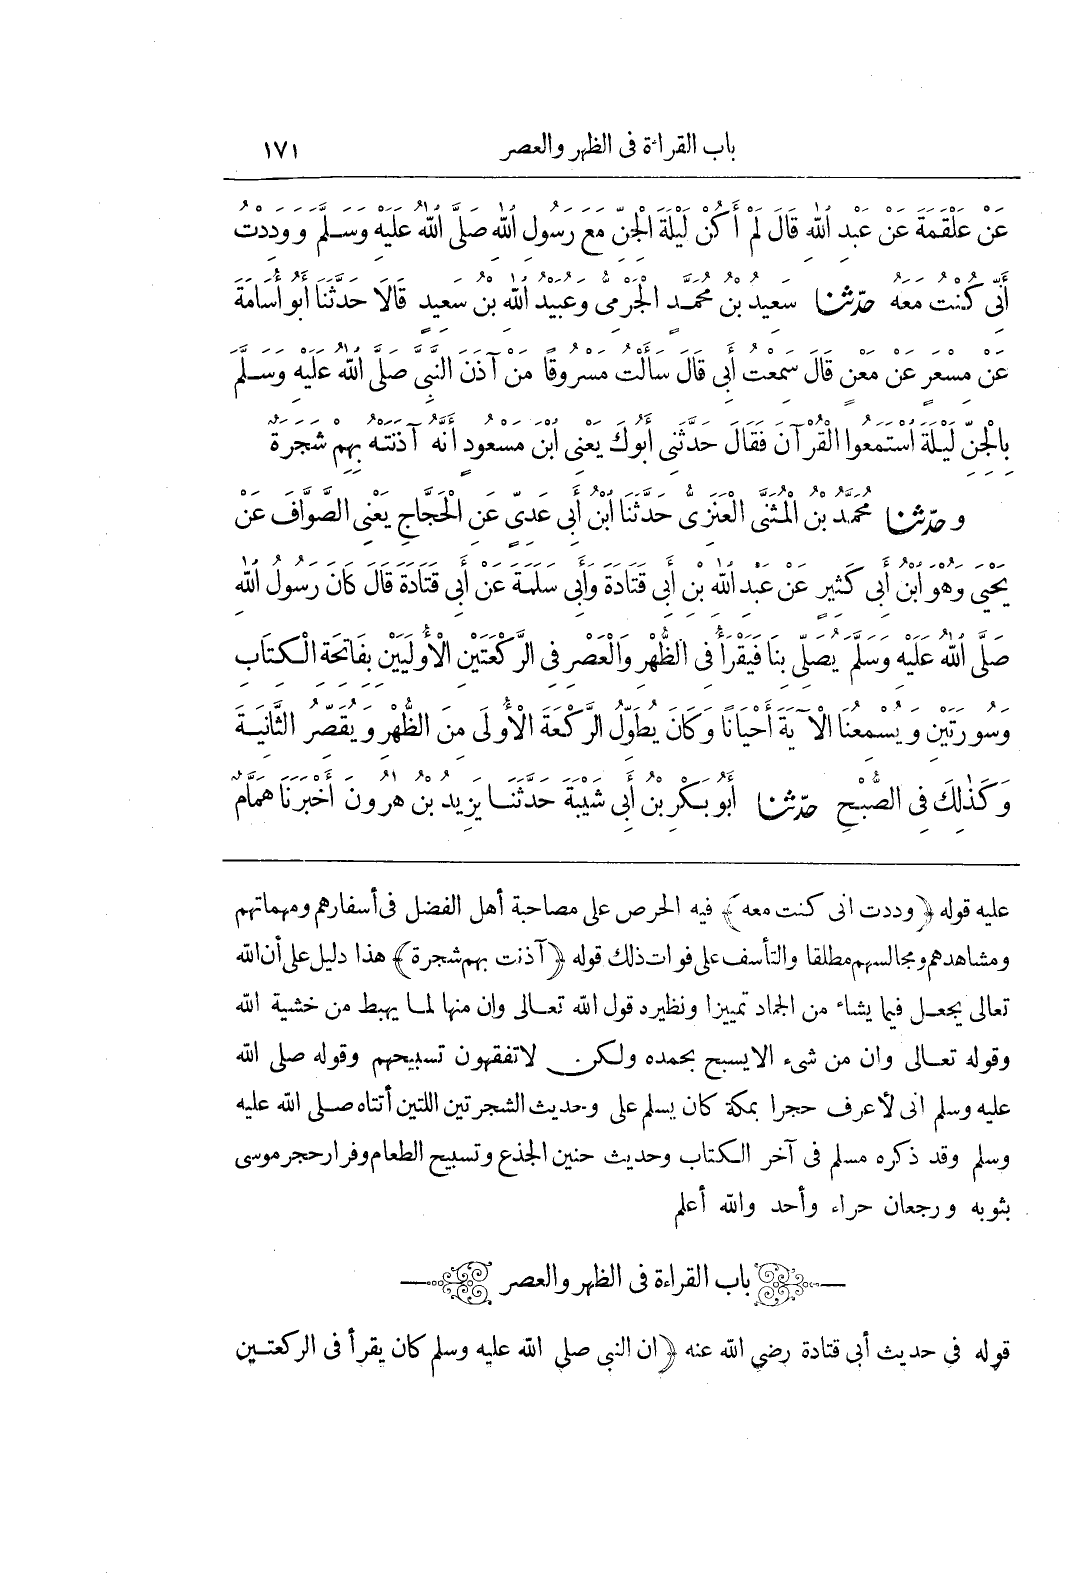 باب القراءة فى الظهر والعصر ١٧١
عَنْ عَلْقَمَةَ عَنْ عَبْدِ اللّٰهِ قَالَ لَمْ أَكُنْ لَيْلَةَ الْجِنِّ مَعَ رَسُولِ اللّٰهِ صَلَّى اللّٰهُ عَلَيْهِ وَسَلَّمَ وَوَدِدْتُ
أَنِّى كُنْتُ مَعَهُ حدّثنا سَعِيدُ بْنُ مُحَمَّدٍ الْجَرْمِىُّ وَعُبَيْدُ اللّٰهِ بْنُ سَعِيدٍ قَالَا حَدَّثَنَا أَبُو أُسَامَةَ
عَنْ مِسْعَرٍ عَنْ مَعْنٍ قَالَ سَمِعْتُ أَبِى قَالَ سَأَلْتُ مَسْرُوقًا مَنْ آذَنَ النَّبِىَّ صَلَّى اللّٰهُ عَلَيْهِ وَسَلَّمَ
بِالْجِنِّ لَيْلَةَ اسْتَمَعُوا الْقُرْآنَ فَقَالَ حَدَّثَنِى أَبُوكَ يَعْنِى ابْنَ مَسْعُودٍ أَنَّهُ آذَنَتْهُ بِهِمْ شَجَرَةٌ
و حدّثنا مُحَمَّدُ بْنُ الْمُثَنَّى الْعَنَزِىُّ حَدَّثَنَا ابْنُ أَبِى عَدِىٍّ عَنِ الْحَجَّاجِ يَعْنِى الصَّوَّافَ عَنْ
يَحْيَى وَهُوَ ابْنُ أَبِى كَثِيرٍ عَنْ عَبْدِ اللّٰهِ بْنِ أَبِى قَتَادَةَ وَأَبِى سَلَمَةَ عَنْ أَبِى قَتَادَةَ قَالَ كَانَ رَسُولُ اللّٰهِ
صَلَّى اللّٰهُ عَلَيْهِ وَسَلَّمَ يُصَلِّى بِنَا فَيَقْرَأُ فِى الظُّهْرِ وَالْعَصْرِ فِى الرَّكْعَتَيْنِ الْأُولَيَيْنِ بِفَاتِحَةِ الْكِتَابِ
وَسُورَتَيْنِ وَيُسْمِعُنَا الْآيَةَ أَحْيَانًا وَكَانَ يُطَوِّلُ الرَّكْعَةَ الْأُولَى مِنَ الظُّهْرِ وَيُقَصِّرُ الثَّانِيَةَ
وَكَذٰلِكَ فِى الصُّبْحِ حدّثنا أَبُو بَكْرِ بْنُ أَبِى شَيْبَةَ حَدَّثَنَا يَزِيدُ بْنُ هٰرُونَ أَخْبَرَنَا هَمَّامٌ
عليه قوله ﴿وددت انى كنت معه﴾ فيه الحرص على مصاحبة أهل الفضل فى أسفارهم ومهماتهم
ومشاهدهم ومجالسهم مطلقا والتأسف على فوات ذلك قوله ﴿آذنت بهم شجرة﴾ هذا دليل على أن الله
تعالى يجعل فيما يشاء من الجماد تمييزا ونظيره قول الله تعالى وان منها لما يهبط من خشية الله
وقوله تعالى وان من شىء الا يسبح بحمده ولكن لا تفقهون تسبيحهم وقوله صلى الله
عليه وسلم انى لأعرف حجرا بمكة كان يسلم على وحديث الشجرتين اللتين أتتاه صلى الله عليه
وسلم وقد ذكره مسلم فى آخر الكتاب وحديث حنين الجذع وتسبيح الطعام وفرار حجر موسى
بثوبه ورجعان حراء وأحد والله أعلم
باب القراءة فى الظهر والعصر
قوله فى حديث أبى قتادة رضى الله عنه ﴿ان النبى صلى الله عليه وسلم كان يقرأ فى الركعتين